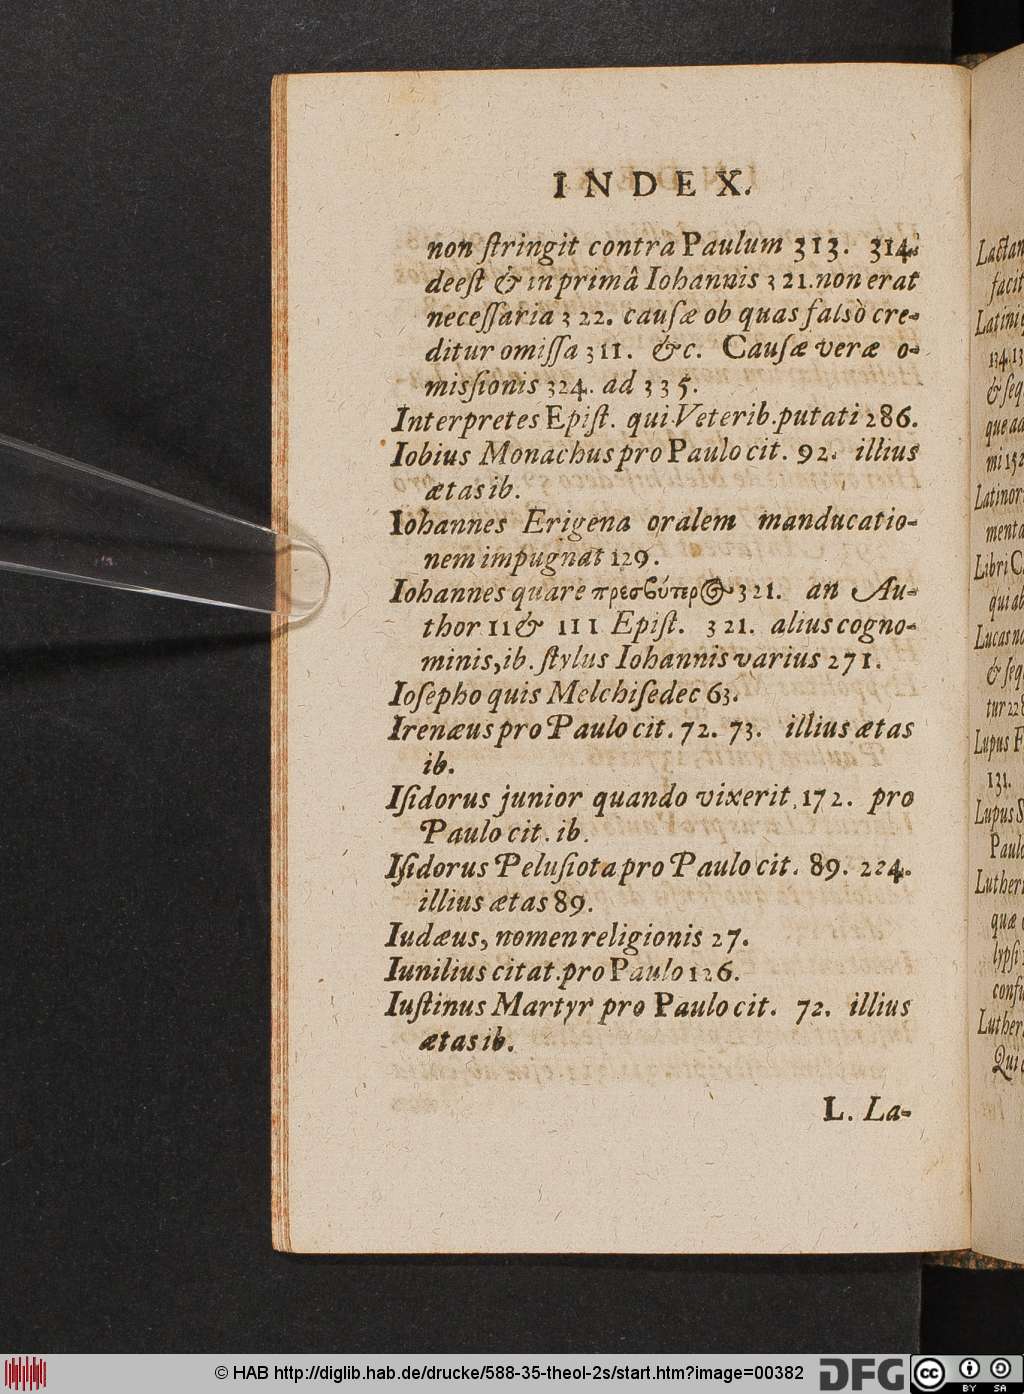 INDEX.
non ſtringit contra Paulum 313. 314.
deeſt & in primâ Iohannis 321. non erat
neceſſaria 322. cauſæ ob quas falsò cre-
ditur omiſſa 311. &c. Cauſæ veræ o-
miſſionis 324. ad 335.
Interpretes Epiſt. qui Veterib. putati 286.
Iobius Monachus pro Paulo cit. 92. illius
ætas ib.
Iohannes Erigena oralem manducatio-
nem impugnat 129.
Iohannes quare πρεσϐύτερος 321. an Au-
thor II & III Epiſt. 321. alius cogno-
minis, ib. ſtylus Iohannis varius 271.
Ioſepho quis Melchiſedec 63.
Irenæus pro Paulo cit. 72. 73. illius ætas
ib.
Iſidorus junior quando vixerit, 172. pro
Paulo cit. ib.
Iſidorus Peluſiota pro Paulo cit. 89. 224.
illius ætas 89.
Iudæus, nomen religionis 27.
Iunilius citat. pro Paulo 126.
Iuſtinus Martyr pro Paulo cit. 72. illius
ætas ib.
L. La-
Lactan
facit
Latini
134. 13
& ſeq
que ad
mi 152
Latinor
menta
Libri C
qui ab
Lucas no
& ſeq
tur 228
Lupus F
131.
Lupus S
Paulo
Lutheri
quæ
lypſi
confu
Luther
Qui
© HAB http://diglib.hab.de/drucke/588-35-theol-2s/start.htm?image=00382
DFG
cc
BY SA